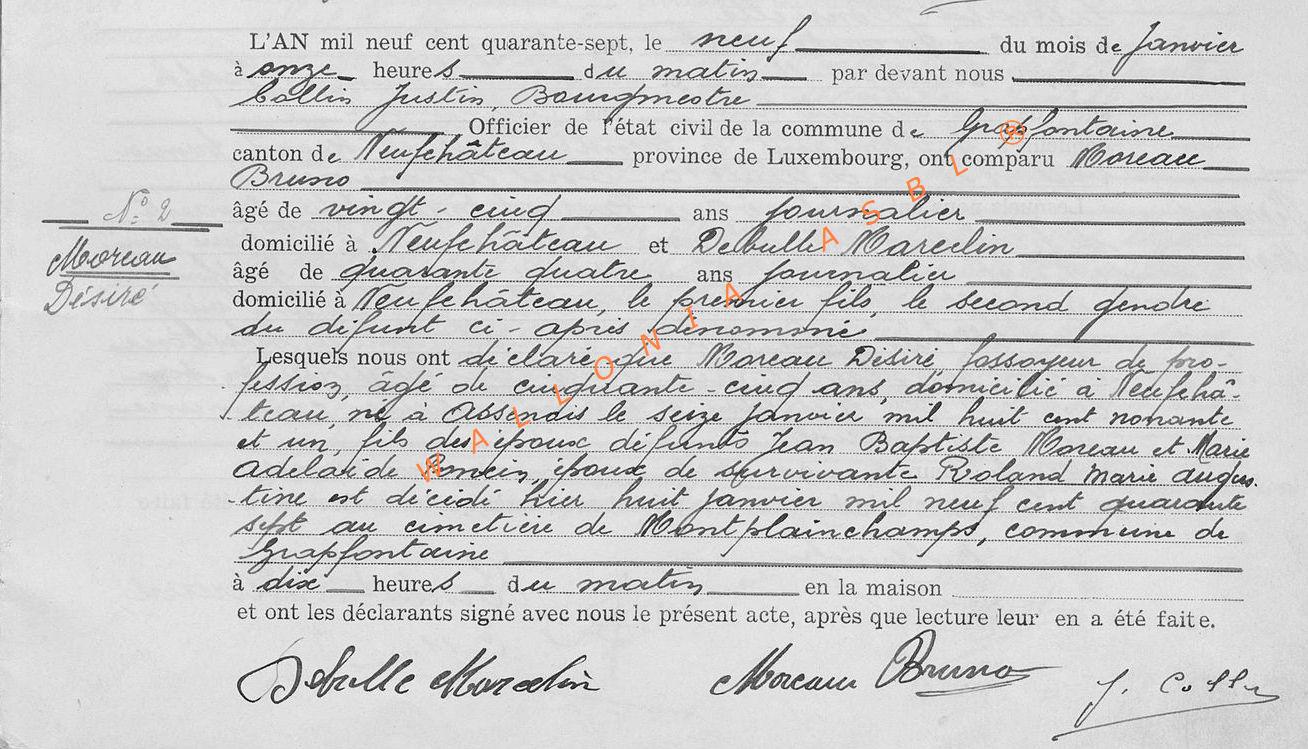 L'AN mil neuf cent quarante-sept, le neuf du mois de Janvier
à onze heures du matin par devant nous
Collin Justin, Bourgmestre
Officier de l'état civil de la commune de Grapfontaine
canton de Neufchâteau province de Luxembourg, ont comparu Moreau
Bruno
âgé de vingt-cinq ans journalier
N° 2
domicilié à Neufchâteau et Debulle Marcelin
Moreau
âgé de quarante quatre ans journalier
Désiré
domicilié à Neufchâteau, le premier fils, le second gendre
du défunt ci-après dénommé
Lesquels nous ont déclaré que Moreau Désiré, fossoyeur de pro-
fession, âgé de cinquante-cinq ans, domicilié à Neufchâ-
teau, né à Assenois le seize janvier mil huit cent nonante
et un, fils des époux défunts Jean Baptiste Moreau et Marie
Adelaïde époux de survivante Roland Marie Augus
tine est décédé hier huit janvier mil neuf cent quarante
sept au cimetière de Montplainchamps, commune de
Grapfontaine
à dix heures du matin en la maison
et ont les déclarants signé avec nous le présent acte, après que lecture leur en a été faite.
Debulle Marcelin Moreau Bruno J. Collin
WALLONIA ASBL ®